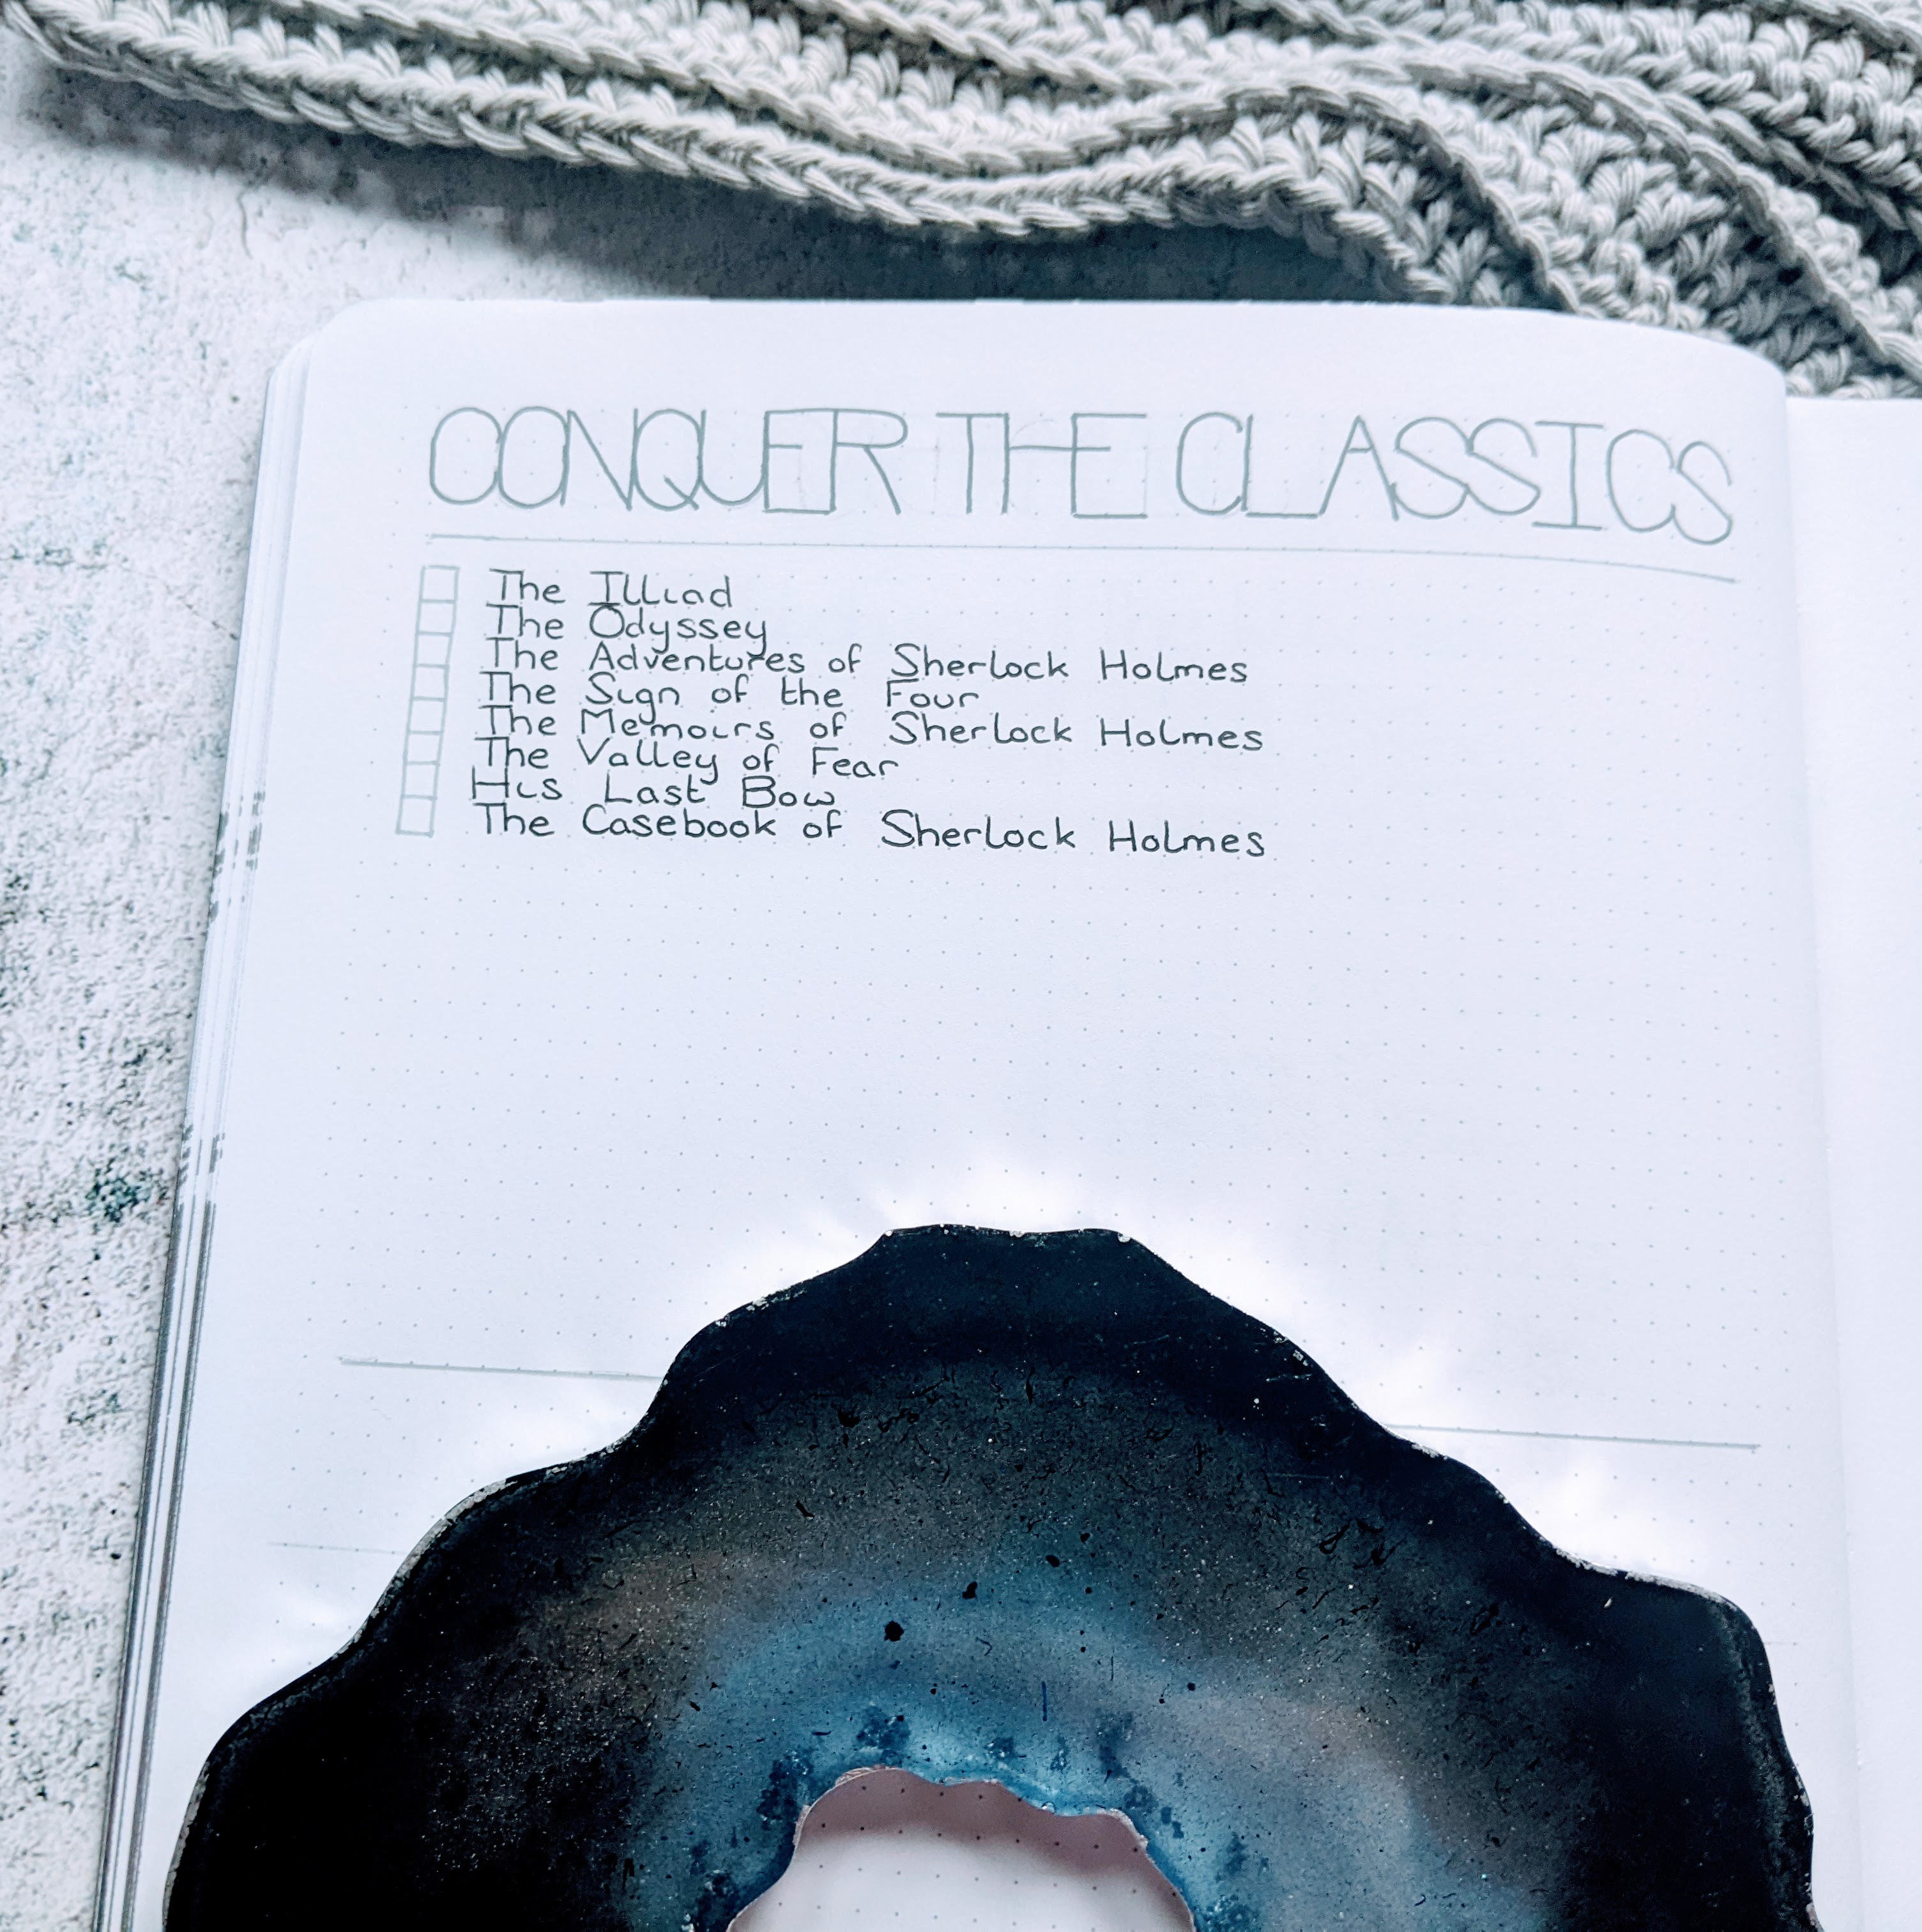 CONQUER THE CLASSICS
The Illiad
The Odyssey
The Adventures of Sherlock Holmes
The Sign of the Four
The Memoirs of Sherlock Holmes
The Valley of Fear
His Last Bow
The Casebook of Sherlock Holmes